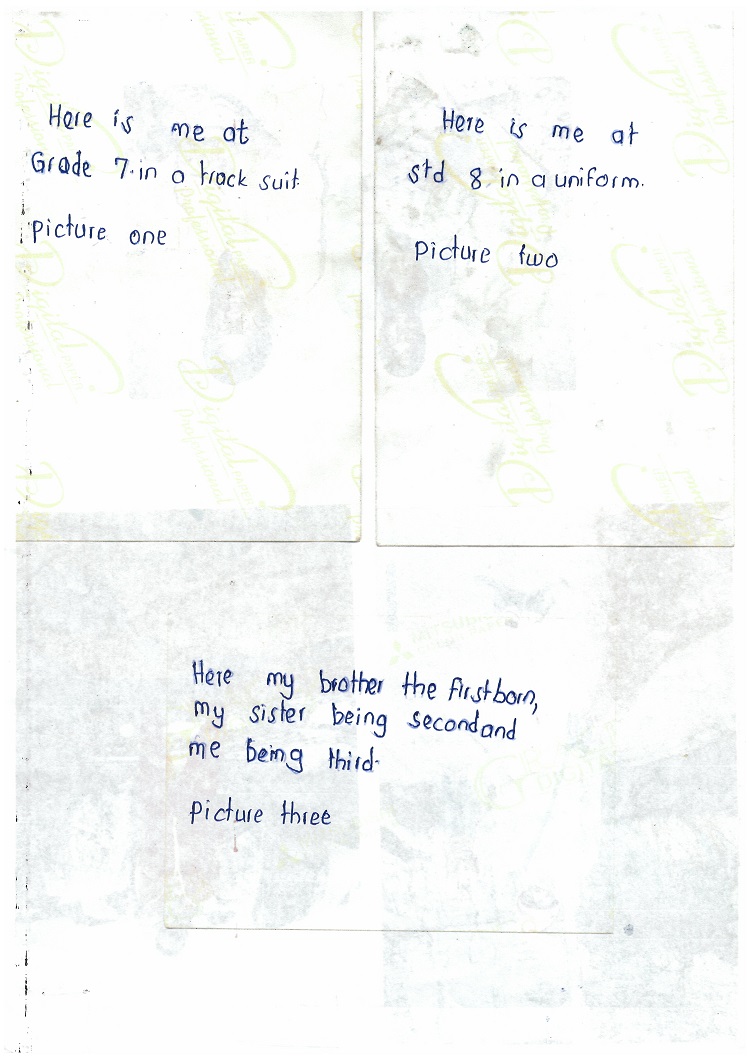 Here is me at
Grade 7 in a track suit
picture one
Here is me at
std 8 in a uniform.
Picture two
Here my brother the firstborn,
my sister being second and
me being third.
Picture three